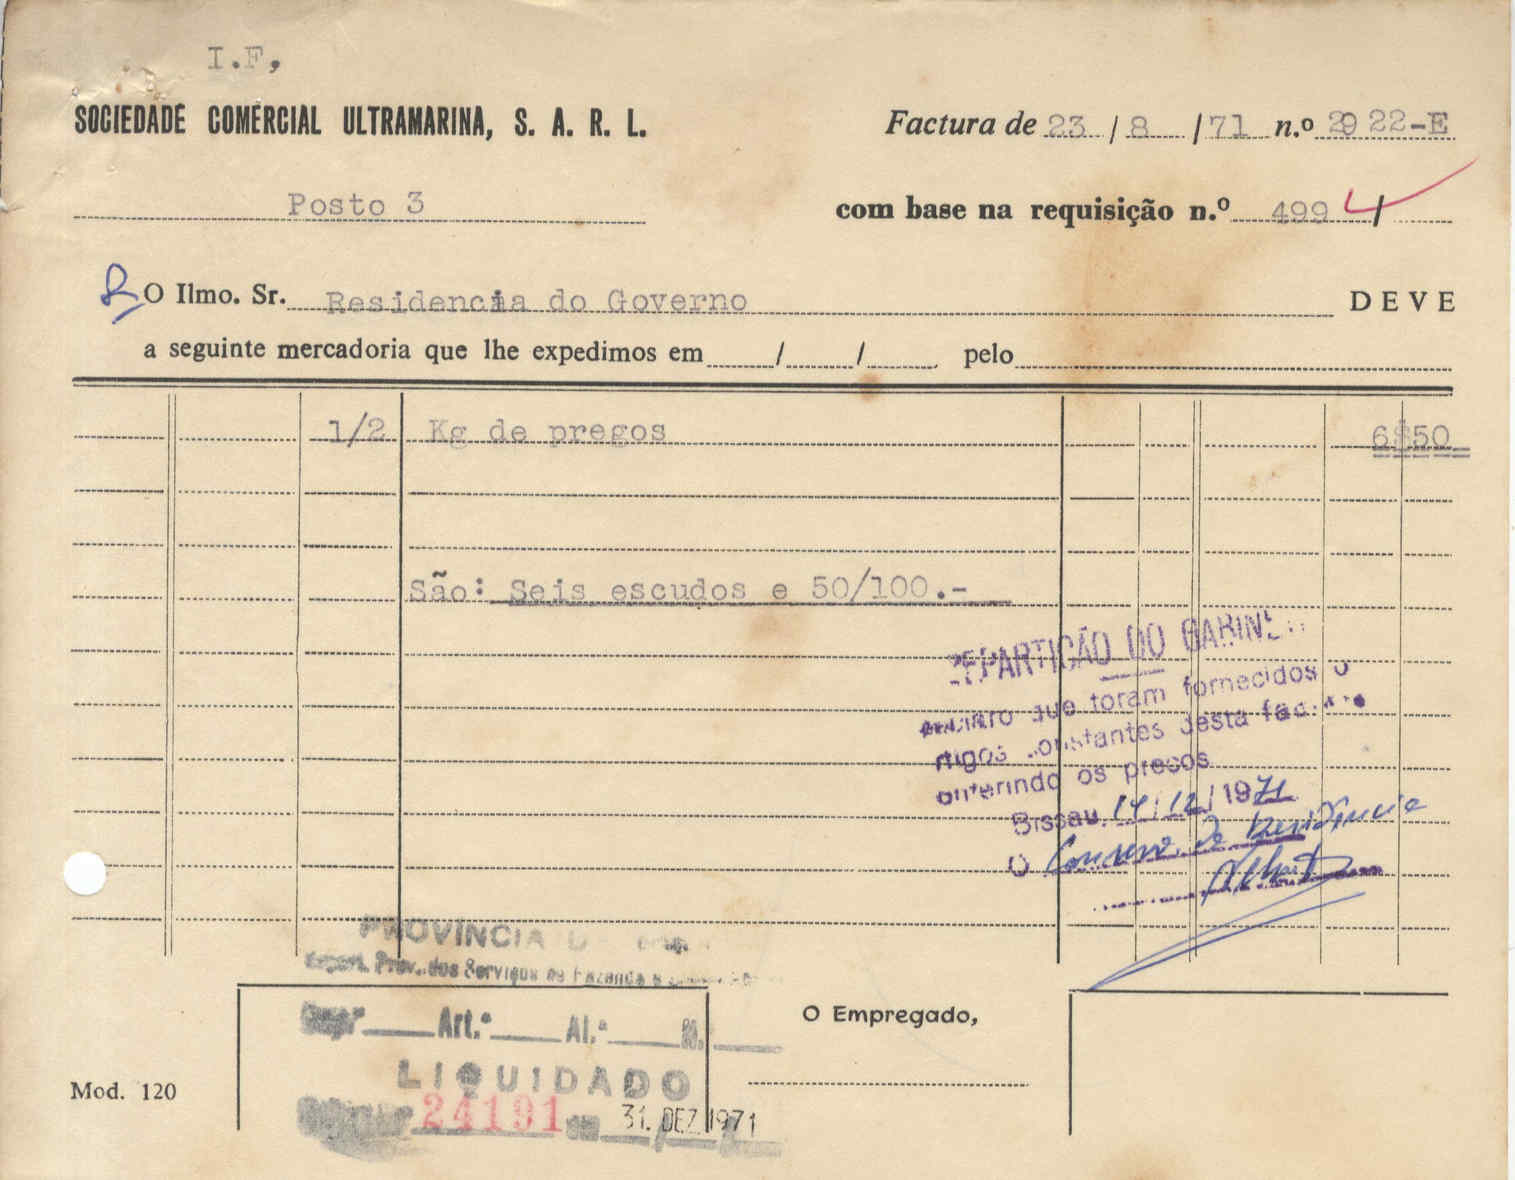 I.F,
SOCIEDADE COMERCIAL ULTRAMARINA, S. A. R. L.
Factura de 23 / 8 / 71 n.º 2922-E
Posto 3
com base na requisição n.º 499
O Ilmo. Sr. Residencia do Governo DEVE
a seguinte mercadoria que lhe expedimos em / / pelo
1/2 Kg de pregos 6$50
São: Seis escudos e 50/100.-
REPARTIÇÃO DO GABINE
que foram fornecidos o
rtigos constantes desta fac
onferindo os preços
Bissau, 14/12/1971
O de Residência
PROVINCIA D
Prov. dos Serviços de Fazenda e
Art.º Al.ª N.
LIQUIDADO
24191 em 31. DEZ 1971
O Empregado,
Mod. 120